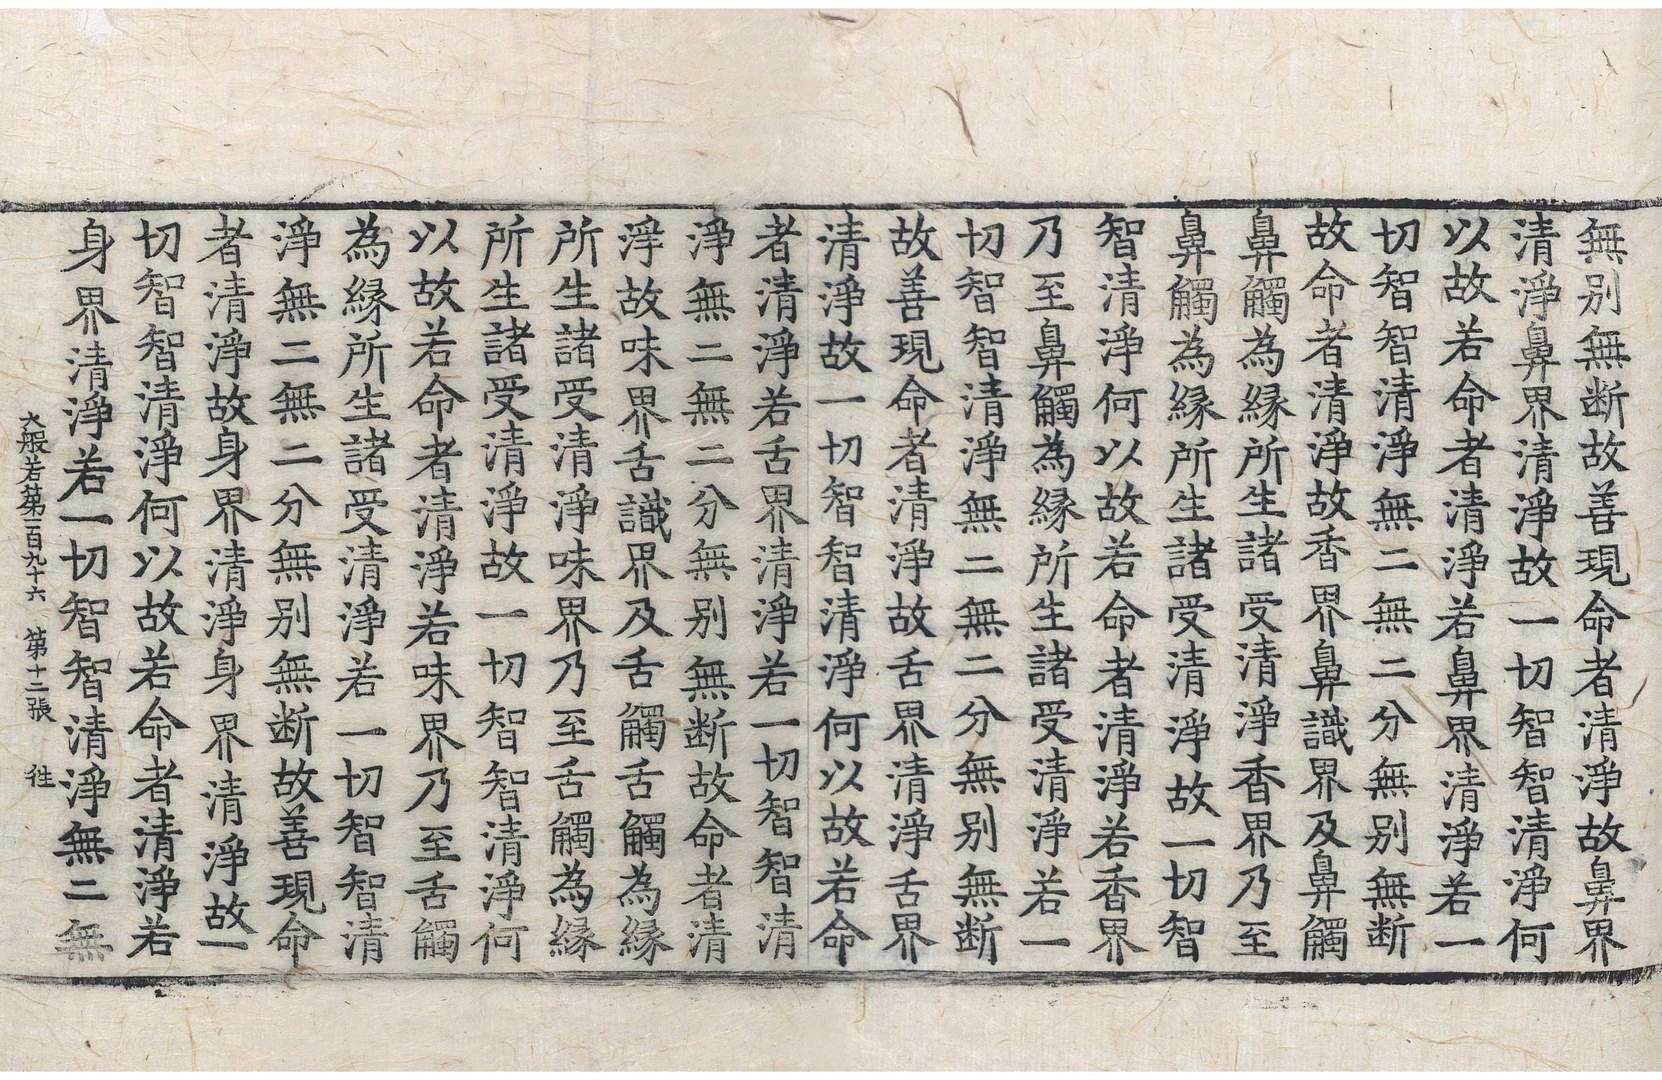 無别無断故善現命者清淨故鼻界
清淨鼻界清淨故一切智智清淨何
以故若命者清淨若鼻界清淨若一
切智智清淨無二無二分無别無断
故命者清淨故香界鼻識界及鼻觸
鼻觸為緣所生諸受清淨香界乃至
鼻觸為緣所生諸受清淨故一切智
智清淨何以故若命者清淨若香界
乃至鼻觸為緣所生諸受清淨若一
切智智清淨無二無二分無别無断
故善現命者清淨故舌界清淨舌界
清淨故一切智智清淨何以故若命
者清淨若舌界清淨若一切智智清
淨無二無二分無别無断故命者清
淨故味界舌識界及舌觸舌觸為緣
所生諸受清淨味界乃至舌觸為緣
所生諸受清淨故一切智智清淨何
以故若命者清淨若味界乃至舌觸
為緣所生諸受清淨若一切智智清
淨無二無二分無别無断故善現命
者清淨故身界清淨身界清淨故一
切智智清淨何以故若命者清淨若
身界清淨若一切智智清淨無二無
大般若第一百九十六 第十二張 徃